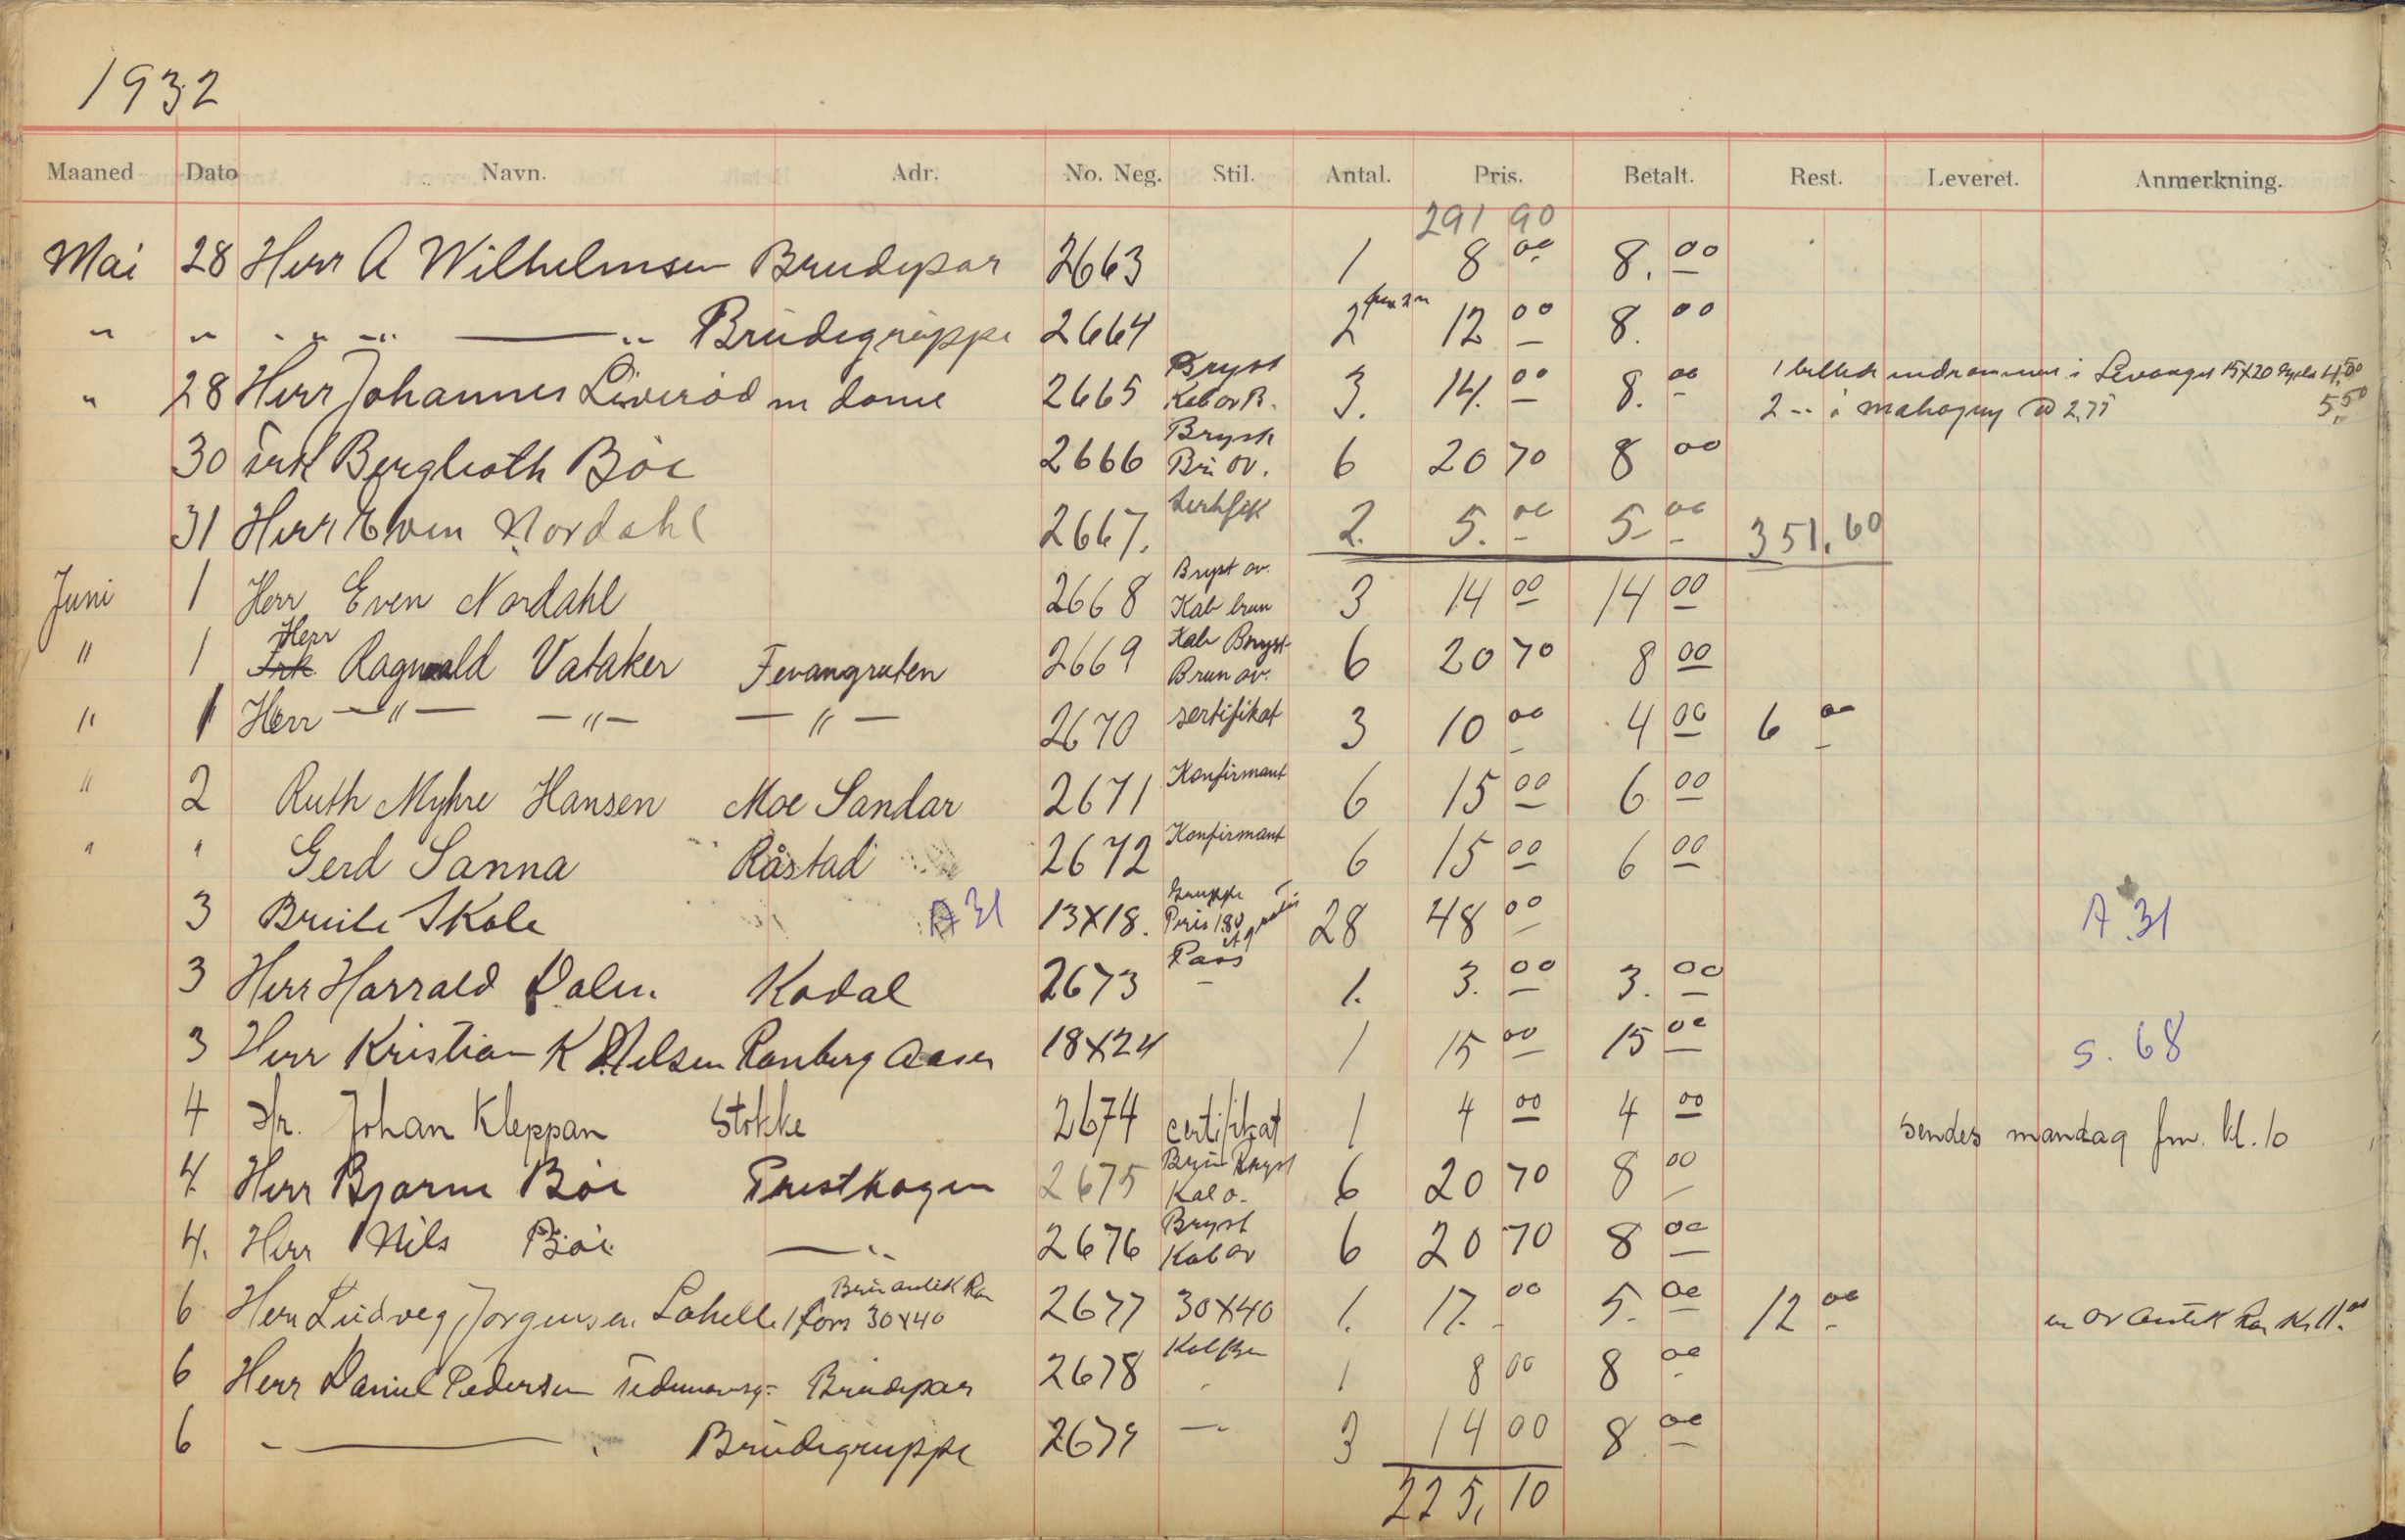 1932
Maaned Dato Navn. Adr. No. Neg. Stil. Antal. Pris. Betalt. Rest. Leveret. Anmerkning.
291 90
Mai 28 Herr A Wilhelmsen Brudepar 2663 1 8 00 8. 00
" " " " " " Brudegruppe 2664 2 12 00 8. 00
" 28 Herr Johannes Liverød m dame 2665 Bryst Kab ov B. 3. 14. 00 8. 00 1 billede indrammes i Levanger 15X20 4.50
2 " i mahogny @ 2,75 5.50
30 Frk Berglioth Böe 2666 Bryst Brü ov. 6 20 70 8 00
31 Herr Even Nordahl 2667. 2. 5. 00 5 00 351.60
Juni 1 Herr Even Nordahl 2668 Bryst ov. Kab brun 3 14 00 14 00
" 1 Herr Frk. Ragnvald Vataker Fevangruten 2669 Kab Bryst Brun ov. 6 20 70 8 00
" 1 Herr — " — — " — — " — 2670 sertifikat 3 10 00 4 00 6 00
" 2 Ruth Myhre Hansen Moe Sandar 2671 Konfirmant 6 15 00 6 00
" " Gerd Sanna Råstad 2672 Konfirmant 6 15 00 6 00
3 Skole A 31 13X18. Gruppe Pris 180 28 48 00 A.31
3 Herr Harrald Dalen Kodal 2673 Pass 1. 3. 00 3. 00
3 Herr Kristian K Nelsen Ranberg Aasen 18X24 1 15 00 15 00 S. 68
4 Hr. Johan Kleppan Stokke 2674 certifikat 1 4 00 4 00 sendes mandag fm. kl. 10
4 Herr Bjarne Böe Presthagen 2675 Brün Bryst Kab o. 6 20 70 8 00
4. Herr Nils Böe — " 2676 Bryst Kab ov 6 20 70 8 00
6 Herr Ludveg Jorgensen Lahelle 1 fom 30X40 Brün antik Ra 2677 30X40 1. 17. 00 5. 00 12 00 ov antik Ra Kr 11.00
6 Herr Daniel Pedersen Brüdepar 2678 Kab Br 1 8 00 8 00
6 — " Brüdegruppe 2679 — " 3 14 00 8 00
225,10